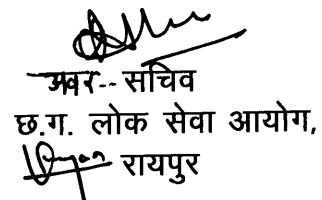 अवर-- सचिव
छ.ग. लोक सेवा आयोग,
रायपुर